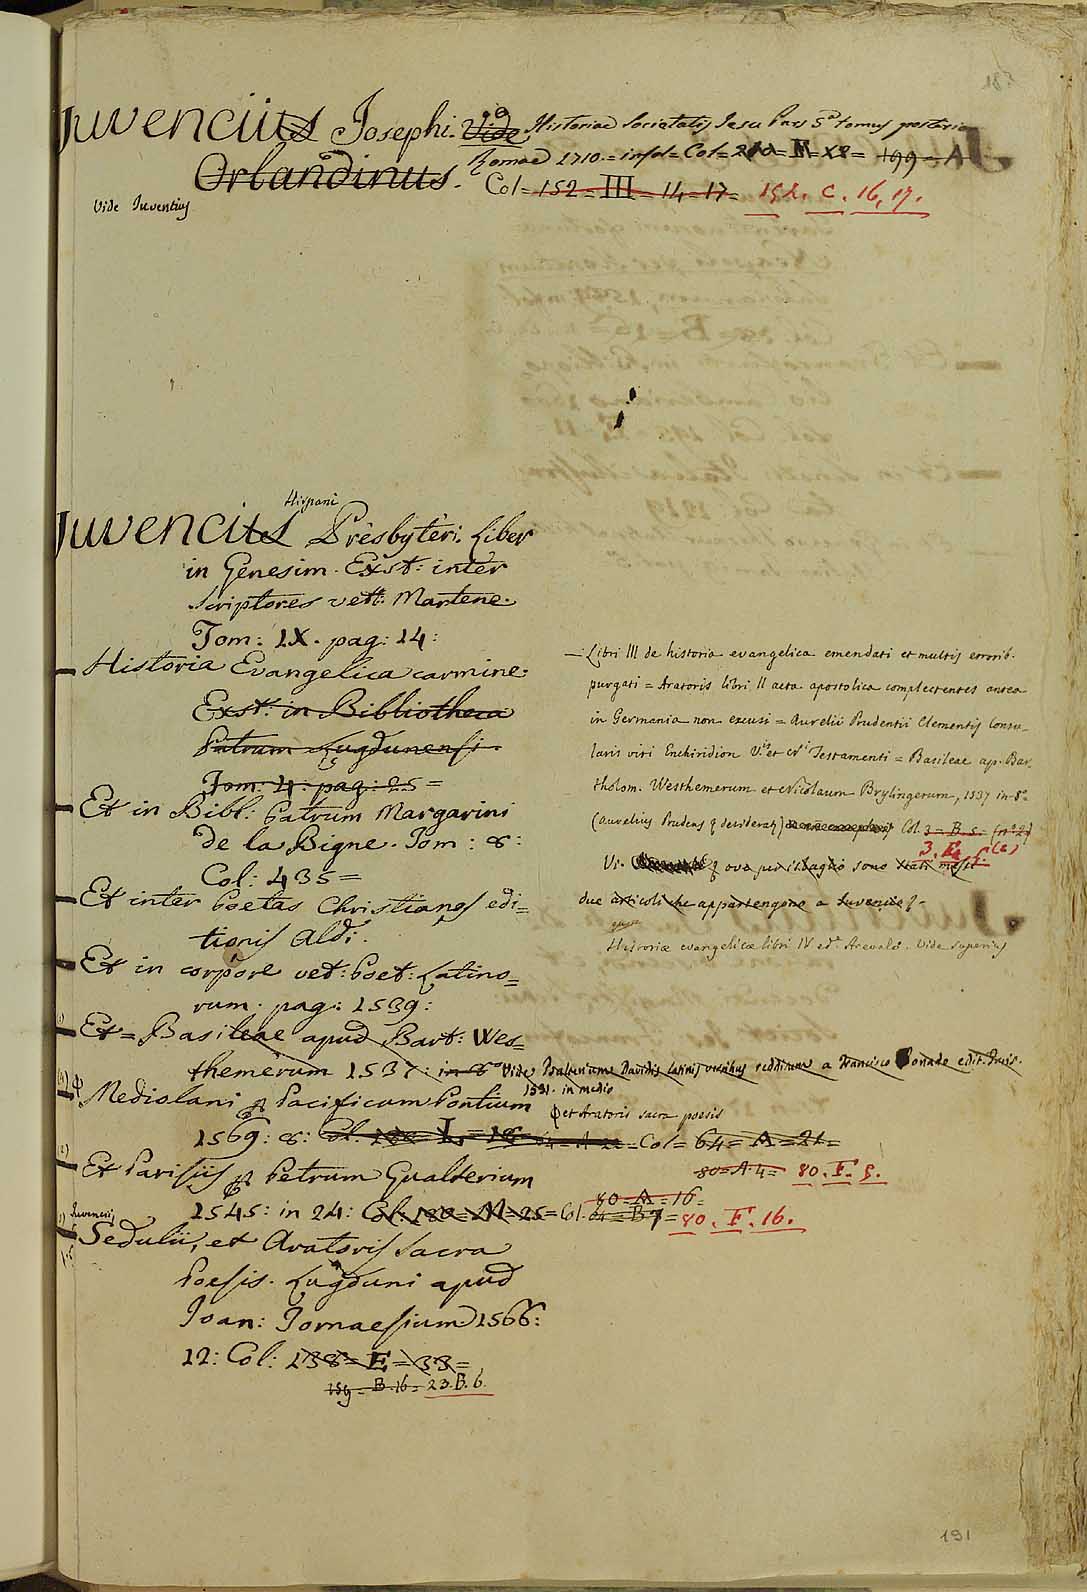 Juvencius Josephi. Vide Historiae Societatis Jesu Pars 5.a tomus posterior
Romae 1710 = in fol = Col = 210 = F = 18 = 199 = A
Orlandinus. Col = 152 = III = 14 = 17 = 152. C. 16, 17.
Vide Juventius
Juvencius Hispani Presbyteri. Liber
in Genesim. Exst: inter
Scriptores vett: Martene.
Tom: IX. pag: 14:
Historia Evangelica carmine.
Exst: in Bibliotheca
Patrum Lugdunensi.
Tom: 4: pag: 25 =
Et in Bibl: Patrum Margarini
de la Bigne. Tom: 8:
Col: 435 =
Et inter Poetas Christianos edi=
tionis Aldi.
Et in corpore vet: Poet: Latino=
rum. pag: 1539:
Et = Basileae apud Bart: Wes=
themerum 1537: in 8°
Vide Psalterium Davidis latinis versibus redditum a Francisco Bonade edit. Pris.
1531. in medio
Mediolani p Pacificum Pontium
et Aratoris sacra poesis
1569: 8: Col: 180 = L = 18 = Col = 64 = A = 21 =
80 = A. 4 = 80. F. 5.
Et Parisijs p Petrum Gualterium
1545: in 24: Col: 180 = M = 25 = Col. 64 = B 7 = 80. F. 16.
80 = A = 16 =
Juvencij
Sedulii, et Aratoris Sacra
Poesis. Lugduni apud
Joan: Tornaesium 1566:
12: Col: 138 = E = 33 =
159 = B. 16 = 23. B. 6.
Libri III de historia evangelica emendati et multis errorib.
purgati = Aratoris libri II acta apostolica complectentes antea
in Germania non excusi = Aurelii Prudentii Clementis Consu-
laris viri Enchiridion V.is et N.i Testamenti = Basileae ap. Bar-
tholom. Westhemerum et Nicolaum Brylingerum, 1537 in 8°
(Aurelius Prudens desideratz) Col. 3 = B. 5. (n° 2)
3. E. 5. (2)
ove per isbaglio sono stati messi
due articoli che appartengono a Juvencie
Historiae evangelicae libri IV ed.e Arevalo. Vide superius
191